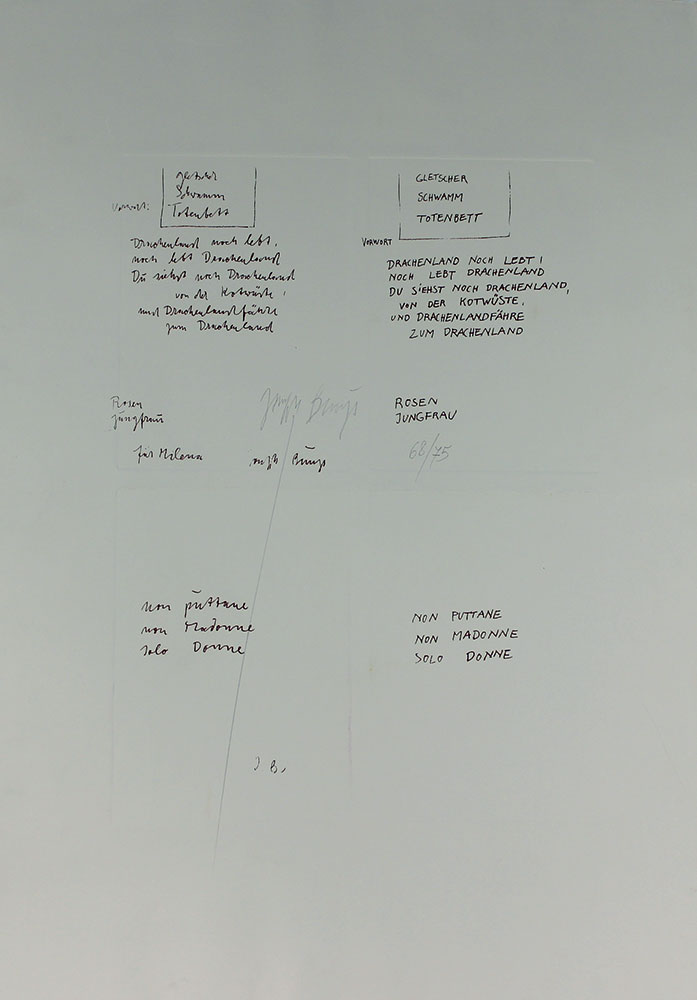 Gletscher
Schwamm
Totenbett
Vorwort:
Drachenland noch lebt,
noch lebt Drachenland
Du siehst noch Drachenland
von der Kotwüste,
und Drachenlandfähre
zum Drachenland
Rosen
Jungfrau
für Milena
Joseph Beuys
Joseph Beuys
non puttane
non Madonne
solo Donne
J B.
GLETSCHER
SCHWAMM
TOTENBETT
VORWORT
DRACHENLAND NOCH LEBT!
NOCH LEBT DRACHENLAND
DU SIEHST NOCH DRACHENLAND,
VON DER KOTWÜSTE,
UND DRACHENLANDFÄHRE
ZUM DRACHENLAND
ROSEN
JUNGFRAU
68/75
NON PUTTANE
NON MADONNE
SOLO DONNE